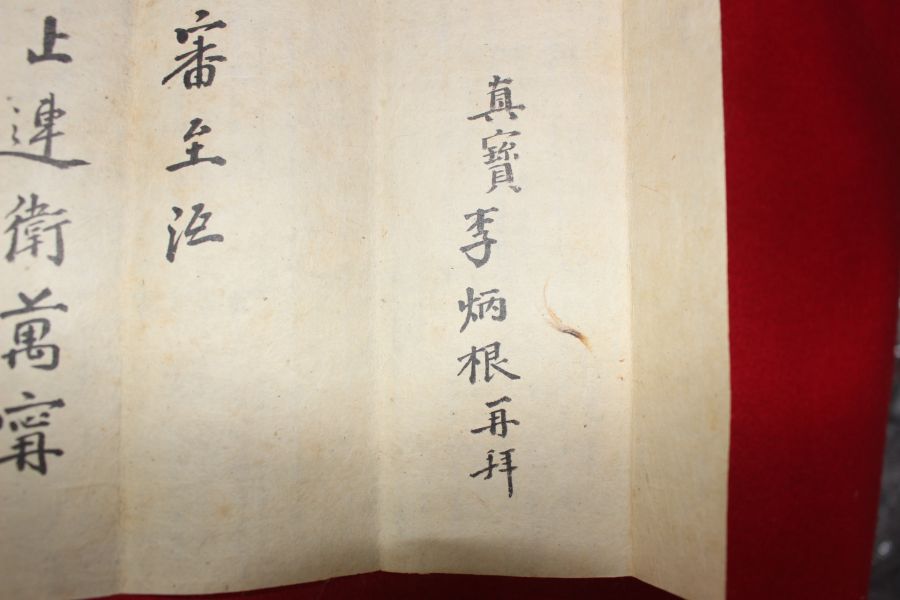 真寶李炳根再拜
審至沍
止連衛萬寗